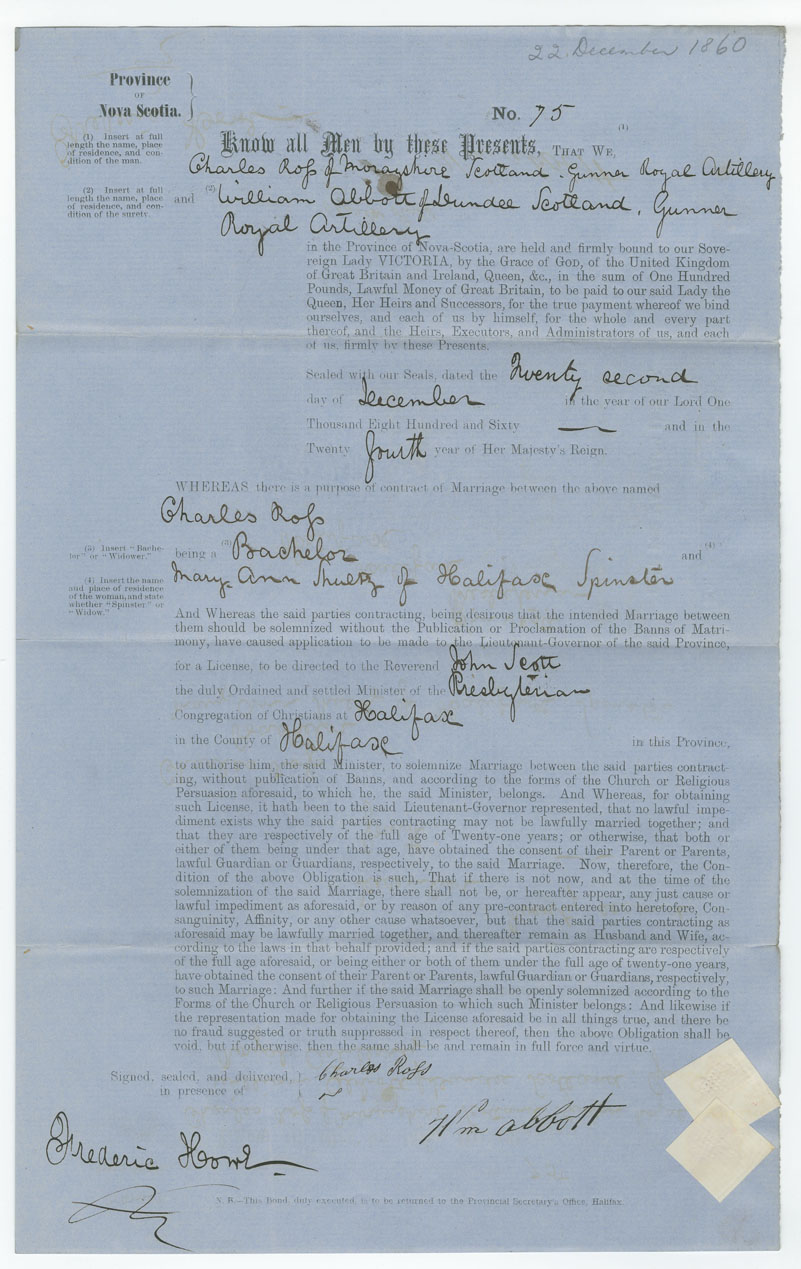 22 December 1860
Province
OF
Nova Scotia.
No. 75
(1) Insert at full
length the name, place
of residence, and con-
dition of the man.
(1)
Know all Men by these Presents, THAT WE,
Charles Ross of Morayshire Scotland. Gunner Royal Artillery
(2) Insert at full
length the name, place
of residence, and con-
dition of the surety.
and (2) William Abbott of Dundee Scotland, Gunner
Royal Artillery
in the Province of Nova-Scotia, are held and firmly bound to our Sove-
reign Lady VICTORIA, by the Grace of GOD, of the United Kingdom
of Great Britain and Ireland, Queen, &c., in the sum of One Hundred
Pounds, Lawful Money of Great Britain, to be paid to our said Lady the
Queen, Her Heirs and Successors, for the true payment whereof we bind
ourselves, and each of us by himself, for the whole and every part
thereof, and the Heirs, Executors, and Administrators of us, and each
of us, firmly by these Presents.
Sealed with our Seals, dated the Twenty second
day of December in the year of our Lord One
Thousand Eight Hundred and Sixty — and in the
Twenty fourth year of Her Majesty's Reign.
WHEREAS there is a purpose of contract of Marriage between the above named
Charles Ross
(3) Insert "Bache-
lor" or "Widower."
being a (3) Bachelor and (4)
(4) Insert the name
and place of residence
of the woman, and state
whether "Spinster" or
"Widow."
Mary Ann Shultz of Halifax Spinster
And Whereas the said parties contracting, being desirous that the intended Marriage between
them should be solemnized without the Publication or Proclamation of the Banns of Matri-
mony, have caused application to be made to the Lieutenant-Governor of the said Province,
for a License, to be directed to the Reverend John Scott
the duly Ordained and settled Minister of the Presbyterian
Congregation of Christians at Halifax
in the County of Halifax in this Province,
to authorise him, the said Minister, to solemnize Marriage between the said parties contract-
ing, without publication of Banns, and according to the forms of the Church or Religious
Persuasion aforesaid, to which he, the said Minister, belongs. And Whereas, for obtaining
such License, it hath been to the said Lieutenant-Governor represented, that no lawful impe-
diment exists why the said parties contracting may not be lawfully married together; and
that they are respectively of the full age of Twenty-one years; or otherwise, that both or
either of them being under that age, have obtained the consent of their Parent or Parents,
lawful Guardian or Guardians, respectively, to the said Marriage. Now, therefore, the Con-
dition of the above Obligation is such, That if there is not now, and at the time of the
solemnization of the said Marriage, there shall not be, or hereafter appear, any just cause or
lawful impediment as aforesaid, or by reason of any pre-contract entered into heretofore, Con-
sanguinity, Affinity, or any other cause whatsoever, but that the said parties contracting as
aforesaid may be lawfully married together, and thereafter remain as Husband and Wife, ac-
cording to the laws in that behalf provided; and if the said parties contracting are respectively
of the full age aforesaid, or being either or both of them under the full age of twenty-one years,
have obtained the consent of their Parent or Parents, lawful Guardian or Guardians, respectively,
to such Marriage: And further if the said Marriage shall be openly solemnized according to the
Forms of the Church or Religious Persuasion to which such Minister belongs: And likewise if
the representation made for obtaining the License aforesaid be in all things true, and there be
no fraud suggested or truth suppressed in respect thereof, then the above Obligation shall be
void, but if otherwise, then the same shall be and remain in full force and virtue.
Signed, sealed, and delivered,
in presence of
Charles Ross
Wm Abbott
Frederic Howe
N. B.—This Bond, duly executed, is to be returned to the Provincial Secretary's Office, Halifax.